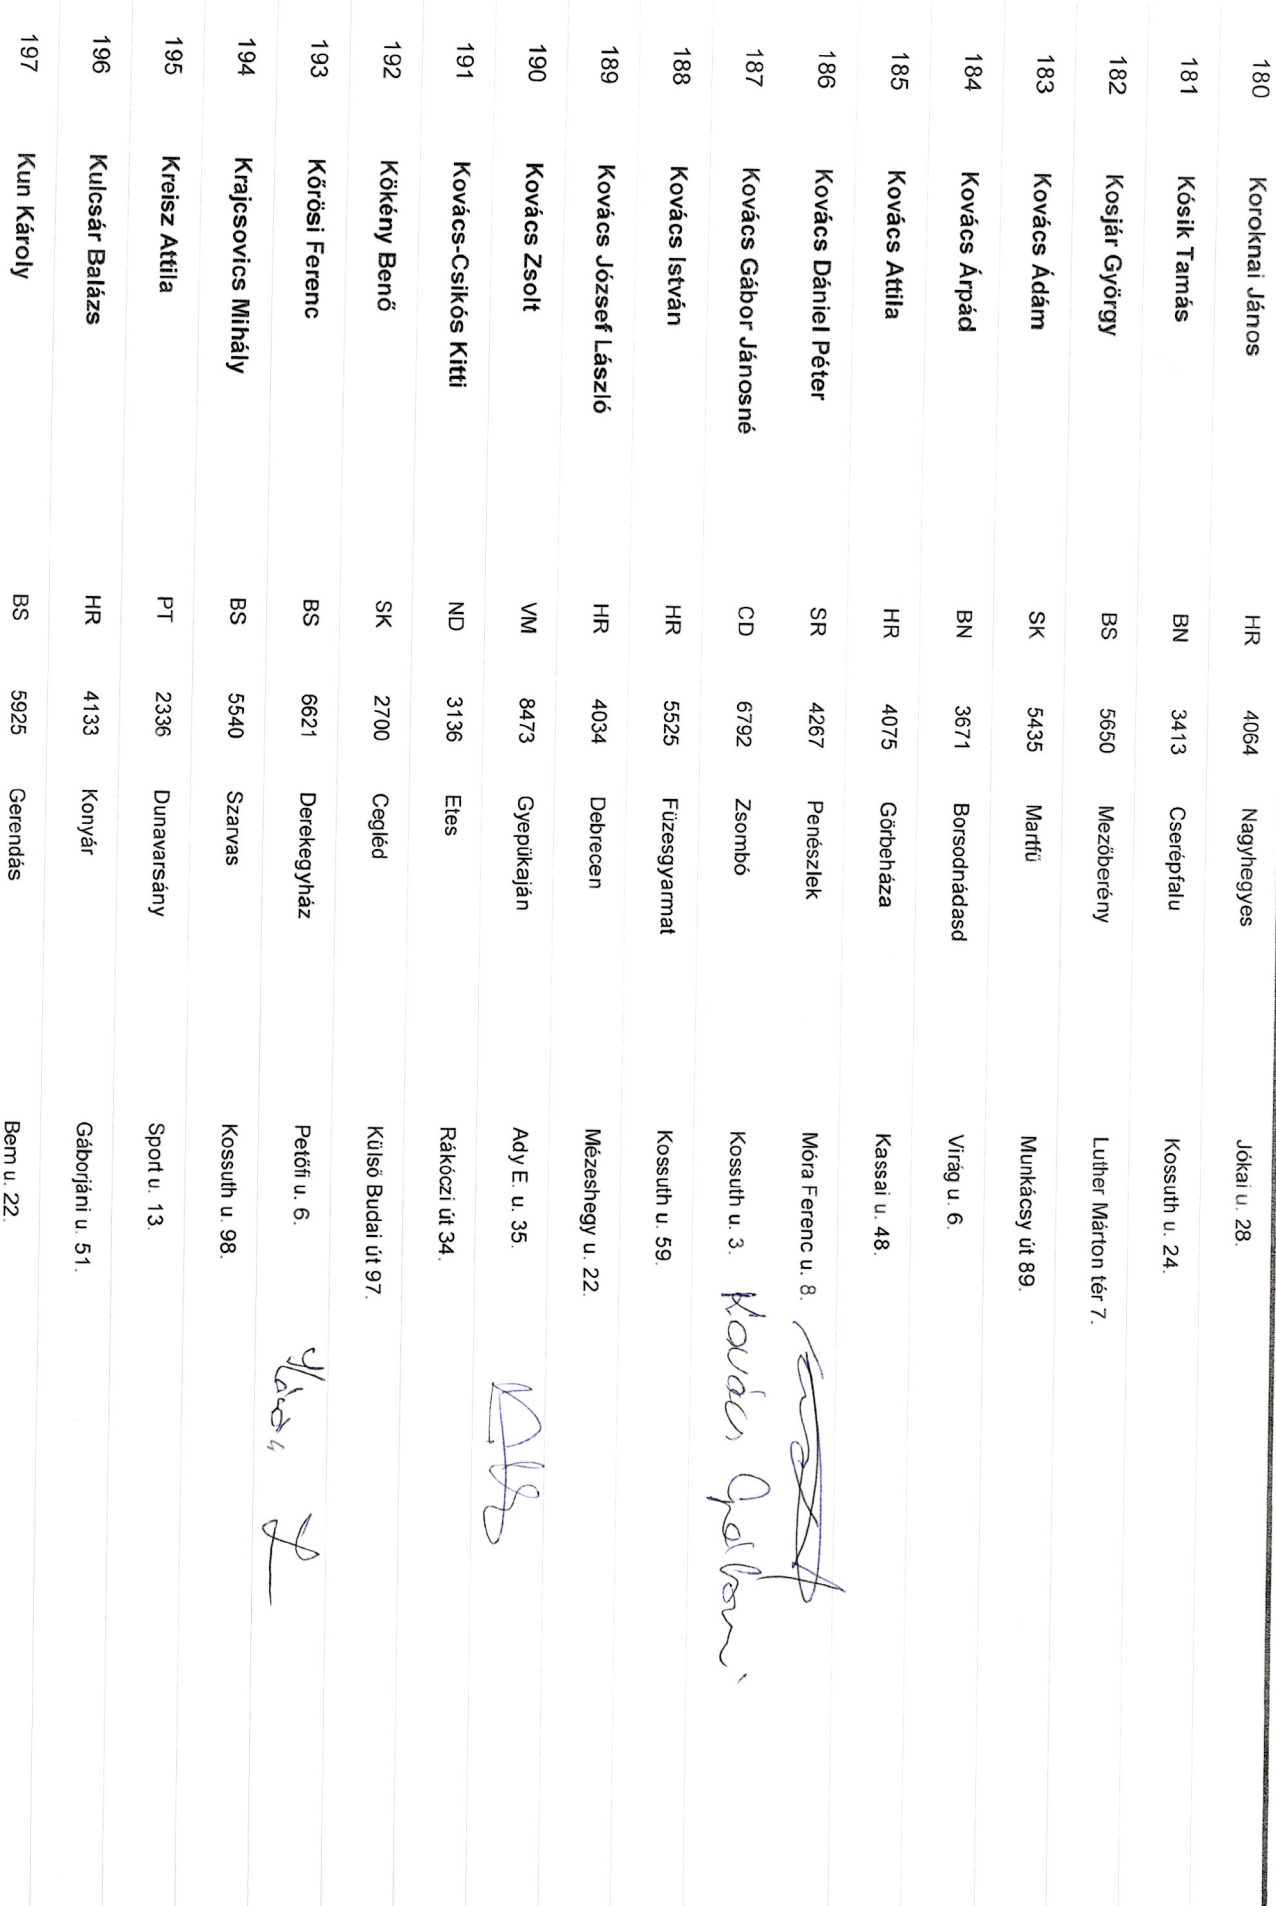 180 Koroknai János HR 4064 Nagyhegyes Jókai u. 28.
181 Kósik Tamás BN 3413 Cserépfalu Kossuth u. 24.
182 Kosjár György BS 5650 Mezőberény Luther Márton tér 7.
183 Kovács Ádám SK 5435 Martfű Munkácsy út 89.
184 Kovács Árpád BN 3671 Borsodnádasd Virág u. 6.
185 Kovács Attila HR 4075 Görbeháza Kassai u. 48.
186 Kovács Dániel Péter SR 4267 Penészlek Móra Ferenc u. 8.
187 Kovács Gábor Jánosné CD 6792 Zsombó Kossuth u. 3. Kovács Gáborné
188 Kovács István HR 5525 Füzesgyarmat Kossuth u. 59.
189 Kovács József László HR 4034 Debrecen Mézeshegy u. 22.
190 Kovács Zsolt VM 8473 Gyepükaján Ady E. u. 35.
191 Kovács-Csikós Kitti ND 3136 Etes Rákóczi út 34.
192 Kökény Benő SK 2700 Cegléd Külső Budai út 97.
193 Kőrösi Ferenc BS 6621 Derekegyház Petőfi u. 6.
194 Krajcsovics Mihály BS 5540 Szarvas Kossuth u. 98.
195 Kreisz Attila PT 2336 Dunavarsány Sport u. 13.
196 Kulcsár Balázs HR 4133 Konyár Gáborjáni u. 51.
197 Kun Károly BS 5925 Gerendás Bem u. 22.